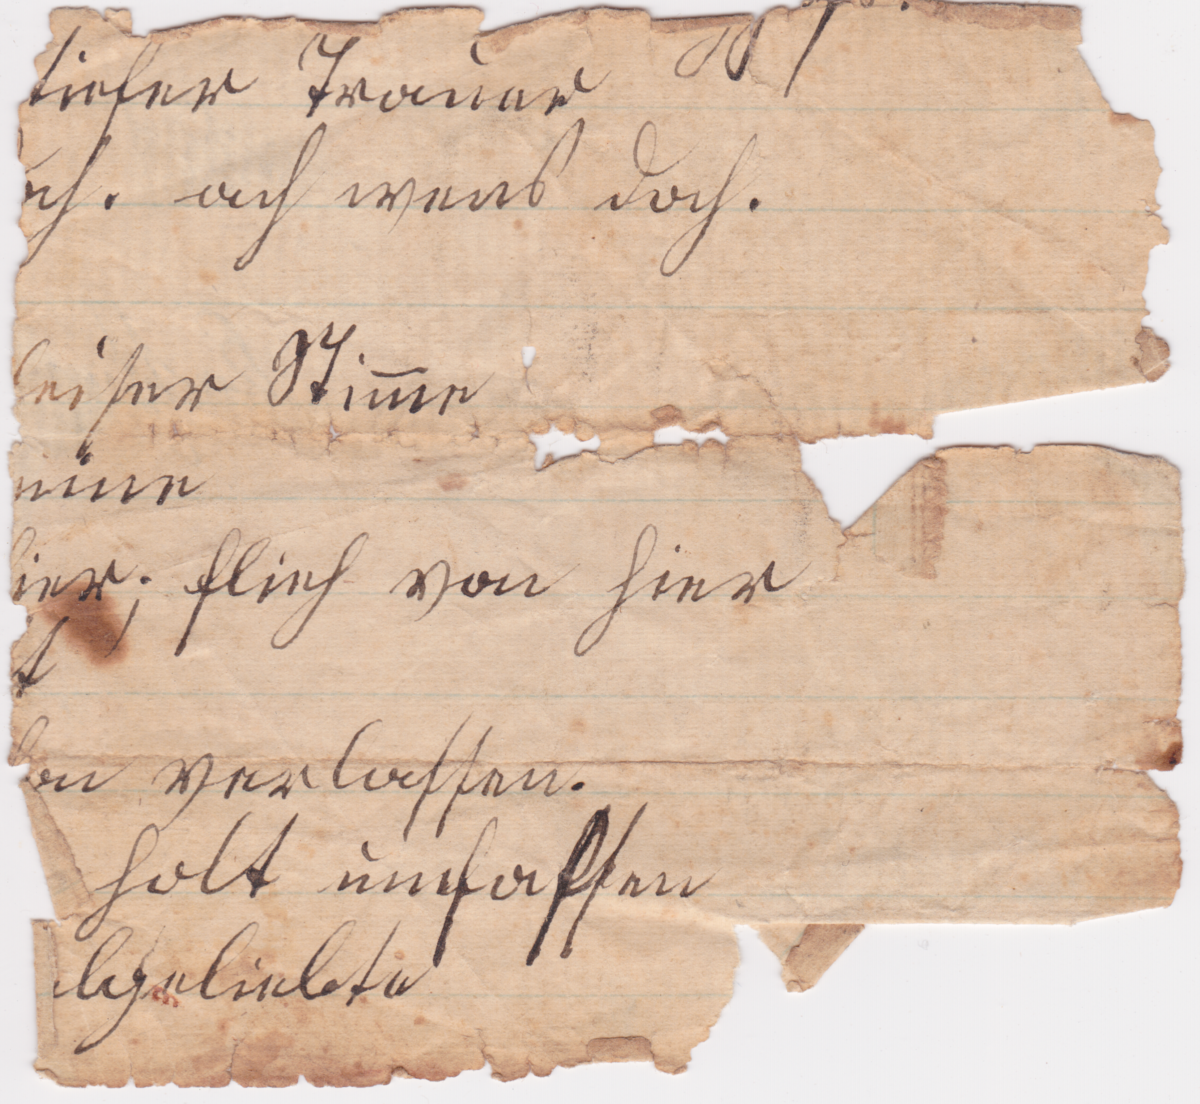 tiefer Trauer
ch. ach wens doch.
leiser Stim̅e
eine
hier; flieh von hier
t
on verlassen.
holt umfassen
lgeliebte